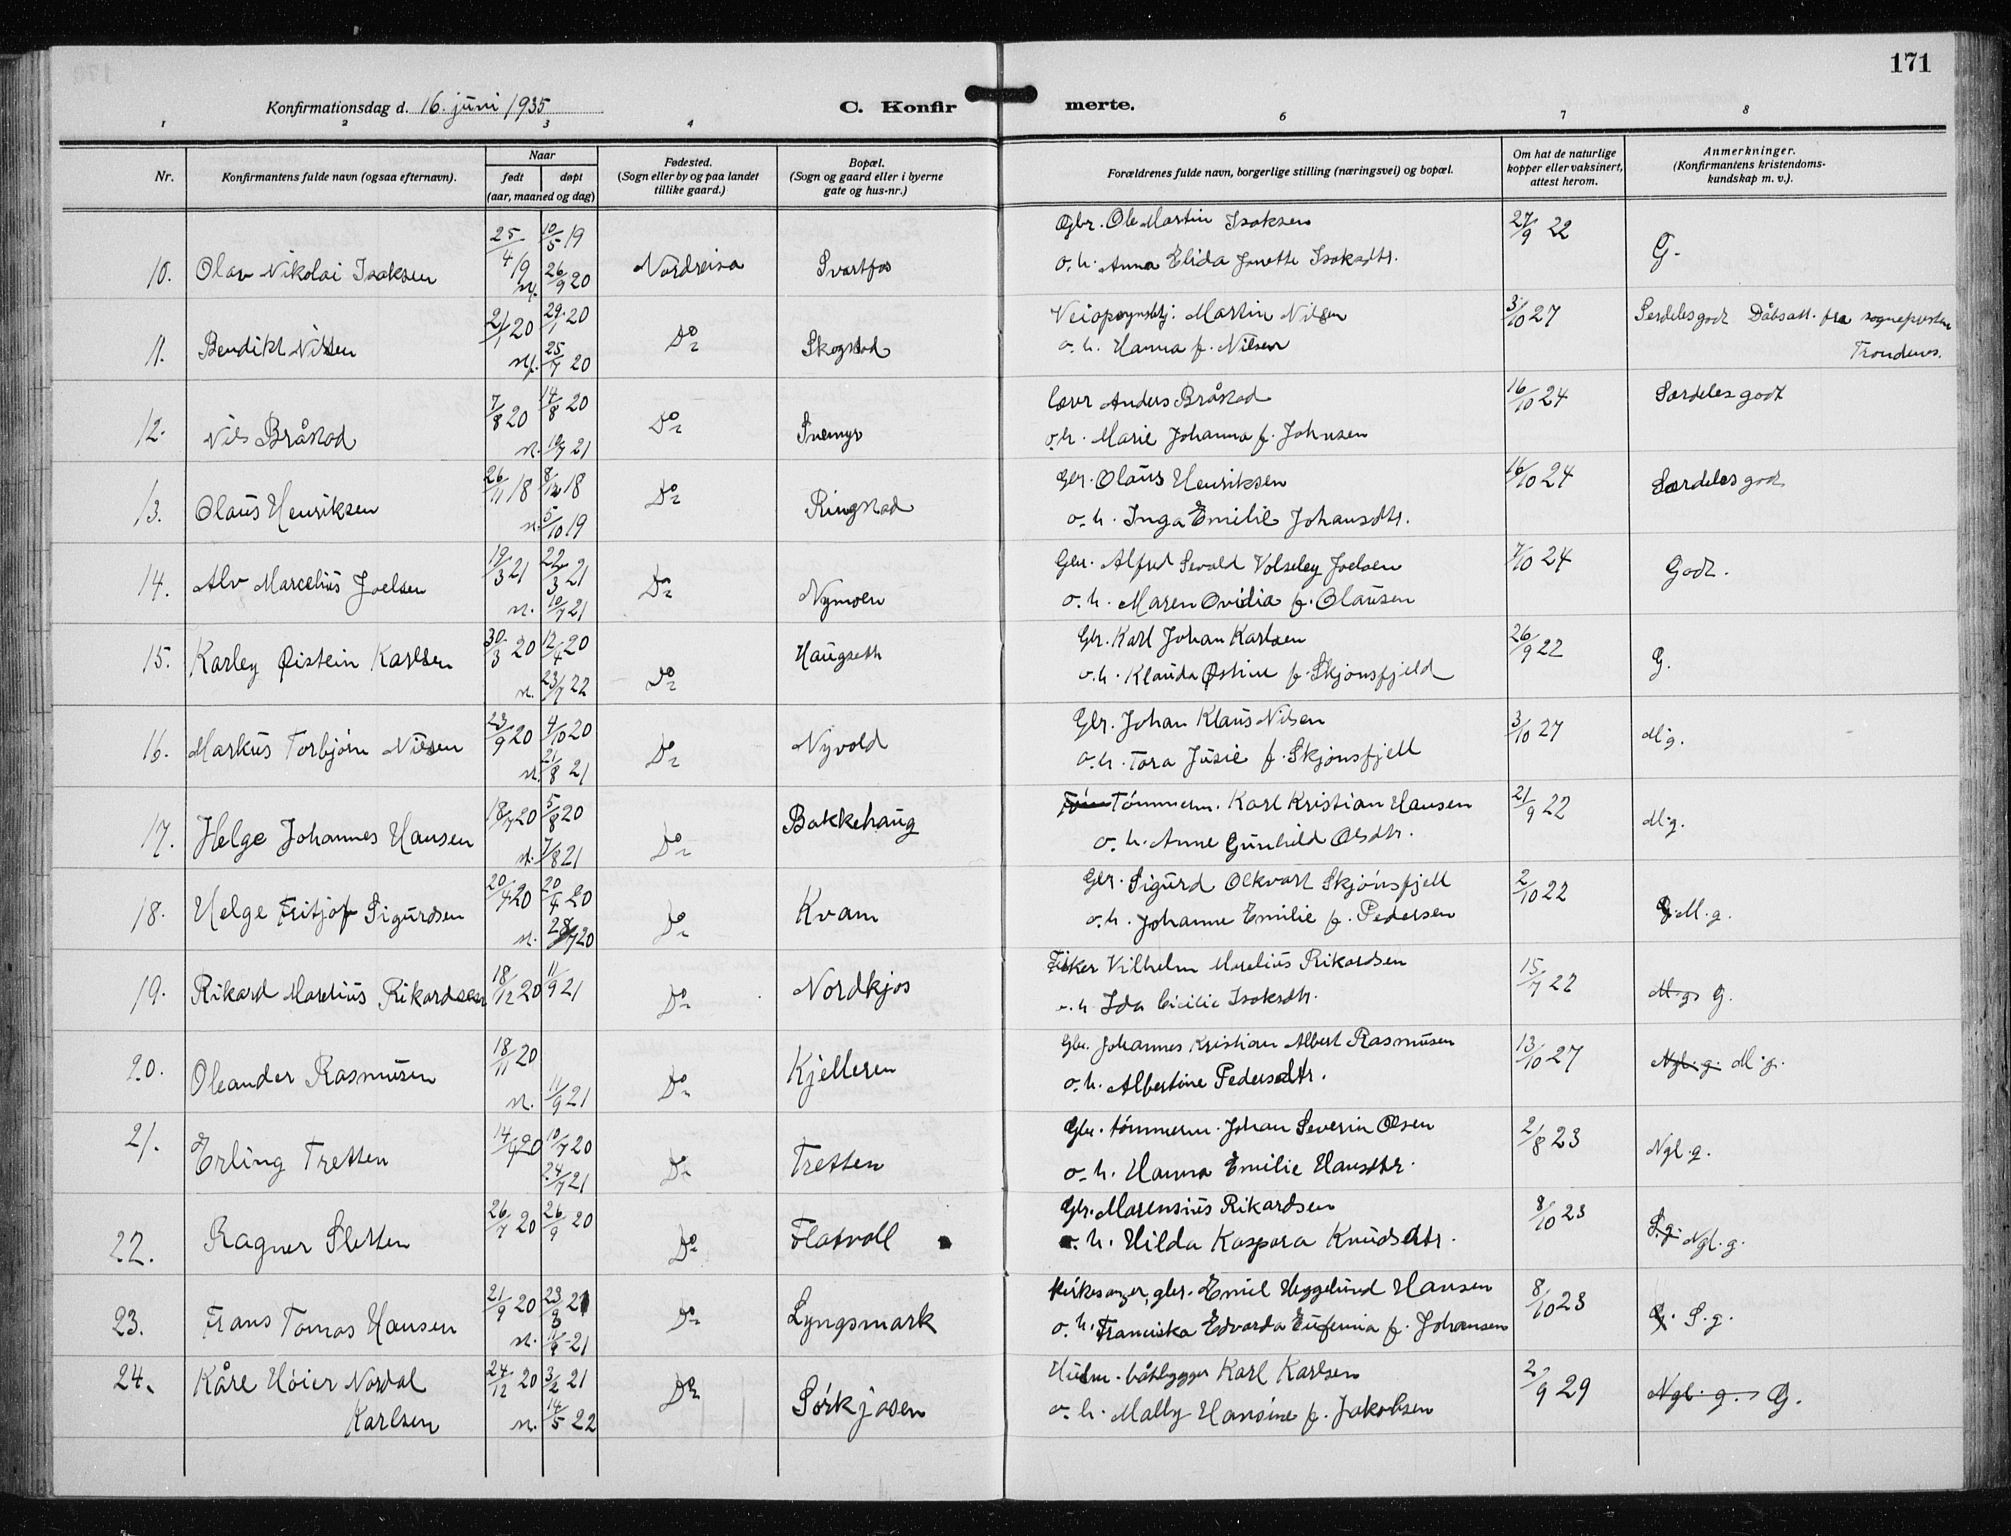 171
Konfirmationsdag d. 16. juni 1935
C. Konfirmerte.
1 2 3 4 5 6 7 8
Nr.
Konfirmantens fulde navn (ogsaa efternavn).
Naar
født døpt
(aar, maaned og dag)
Fødested.
(Sogn eller by og paa landet
tillike gaard.)
Bopæl.
(Sogn og gaard eller i byerne
gate og hus-nr.)
Forældrenes fulde navn, borgerlige stilling (næringsvei) og bopæl.
Om hat de naturlige
kopper eller vaksinert,
attest herom.
Anmerkninger.
(Konfirmantens kristendoms-
kundskap m. v.).
10. Olav Nikolai Isaksen 25/4 19 10/5 19 n. 26/9 20 Nordreisa Svartfos
Gbr. Ole Martin Isaksen 27/9 22 G.
o. h. Anna Elida Janette Isaksdtr.
11. Bendikt Nilsen 21/1 20 29/1 20 25/7 20 Do Skogstad
Martin Nilsen 3/10 27 Serdeles godt Dåbsatt. fra sognepresten
o. h. Hanna f. Nilsen Trondenes.
12. Nils Bråstad 7/8 20 14/8 20 n. 10/7 21 Do Snemyr
Anders Bråstad 16/10 24 Særdeles godt
o. h. Marie Johanna f. Johnsen
13. Olaus Henriksen 26/11 18 8/12 18 n. 5/10 19 Do Ringstad
Gbr. Olaus Henriksen 16/10 24 Særdeles godt
o. h. Inga Emilie Johansdtr.
14. Alv Marcelius Joelsen 19/3 21 22/3 21 n. 10/7 21 Do Nymoen
Gbr. Alfred Sevald Volseley Joelsen 7/10 24 Godt.
o. h. Maren Ovidia f. Olausen
15. Karley Øistein Karlsen 30/3 20 12/4 20 n. 23/7 22 Do Haugseth
Gbr. Karl Johan Karlsen 26/9 22 G.
o. h. Klauda Østine f. Skjønsfjeld
16. Markus Torbjørn Nilsen 23/9 20 4/10 20 n. 21/8 21 Do Nyvold
Gbr. Johan Klaus Nilsen 3/10 27 M.g.
o. h. Tora Jusie f. Skjønsfjell
17. Helge Johannes Hansen 18/7 20 5/8 20 n. 7/8 21 Do Bakkehaug
Tømmerm. Karl Kristian Hansen 21/9 22 M.g.
o. h. Anne Gunhild Olsdtr.
18. Helge Fritjof Sigurdsen 20/4 20 20/4 20 n. 28/7 20 Do Kvam
Gbr. Sigurd Olkvart Skjønsfjell 2/10 22 G. M.g.
o. h. Johanne Emilie f. Pedersen
19. Rikard Marelius Rikardsen 18/12 20 11/9 21 Do Nordkjos
Fisker Vilhelm Marelius Rikardsen 15/7 22 M.g. G.
o. h. Ida Cicilie Isaksdtr.
20. Oleander Rasmusen 18/11 20 n. 11/9 21 Do Kjelleren
Gbr. Johannes Kristian Albert Rasmusen 13/10 27 Ngl. g. M.g.
o. h. Albertine Pedersdtr.
21. Erling Tretten 14/4 20 10/7 20 24/7 21 Do Tretten
Gbr. tømmerm. Johan Severin Olsen 2/8 23 Ngl. g.
o. h. Hanna Emilie Hansdtr.
22. Ragnar Sletten 26/7 20 26/9 20 Do Flatvoll
Gbr. Marensius Rikardsen 8/10 23 S.g. Ngl. g.
o. h. Hilda Kaspara Knudsdtr.
23. Frans Tomas Hansen 21/9 20 23/3 21 n. 21 Do Lyngsmark
Kirkesanger, gbr. Emil Heggelund Hansen 8/10 23 G. S.g.
o. h. Franciska Edvarda Eufemia f. Johansen
24. Kåre Høier Nordal 24/12 20 3/2 21 n. 14/5 22 Do Sørkjosen
Karlsen
båtbygger Karl Karlsen 2/9 29 Ngl. g. G.
o. h. Mally Hansine f. Jakobsen